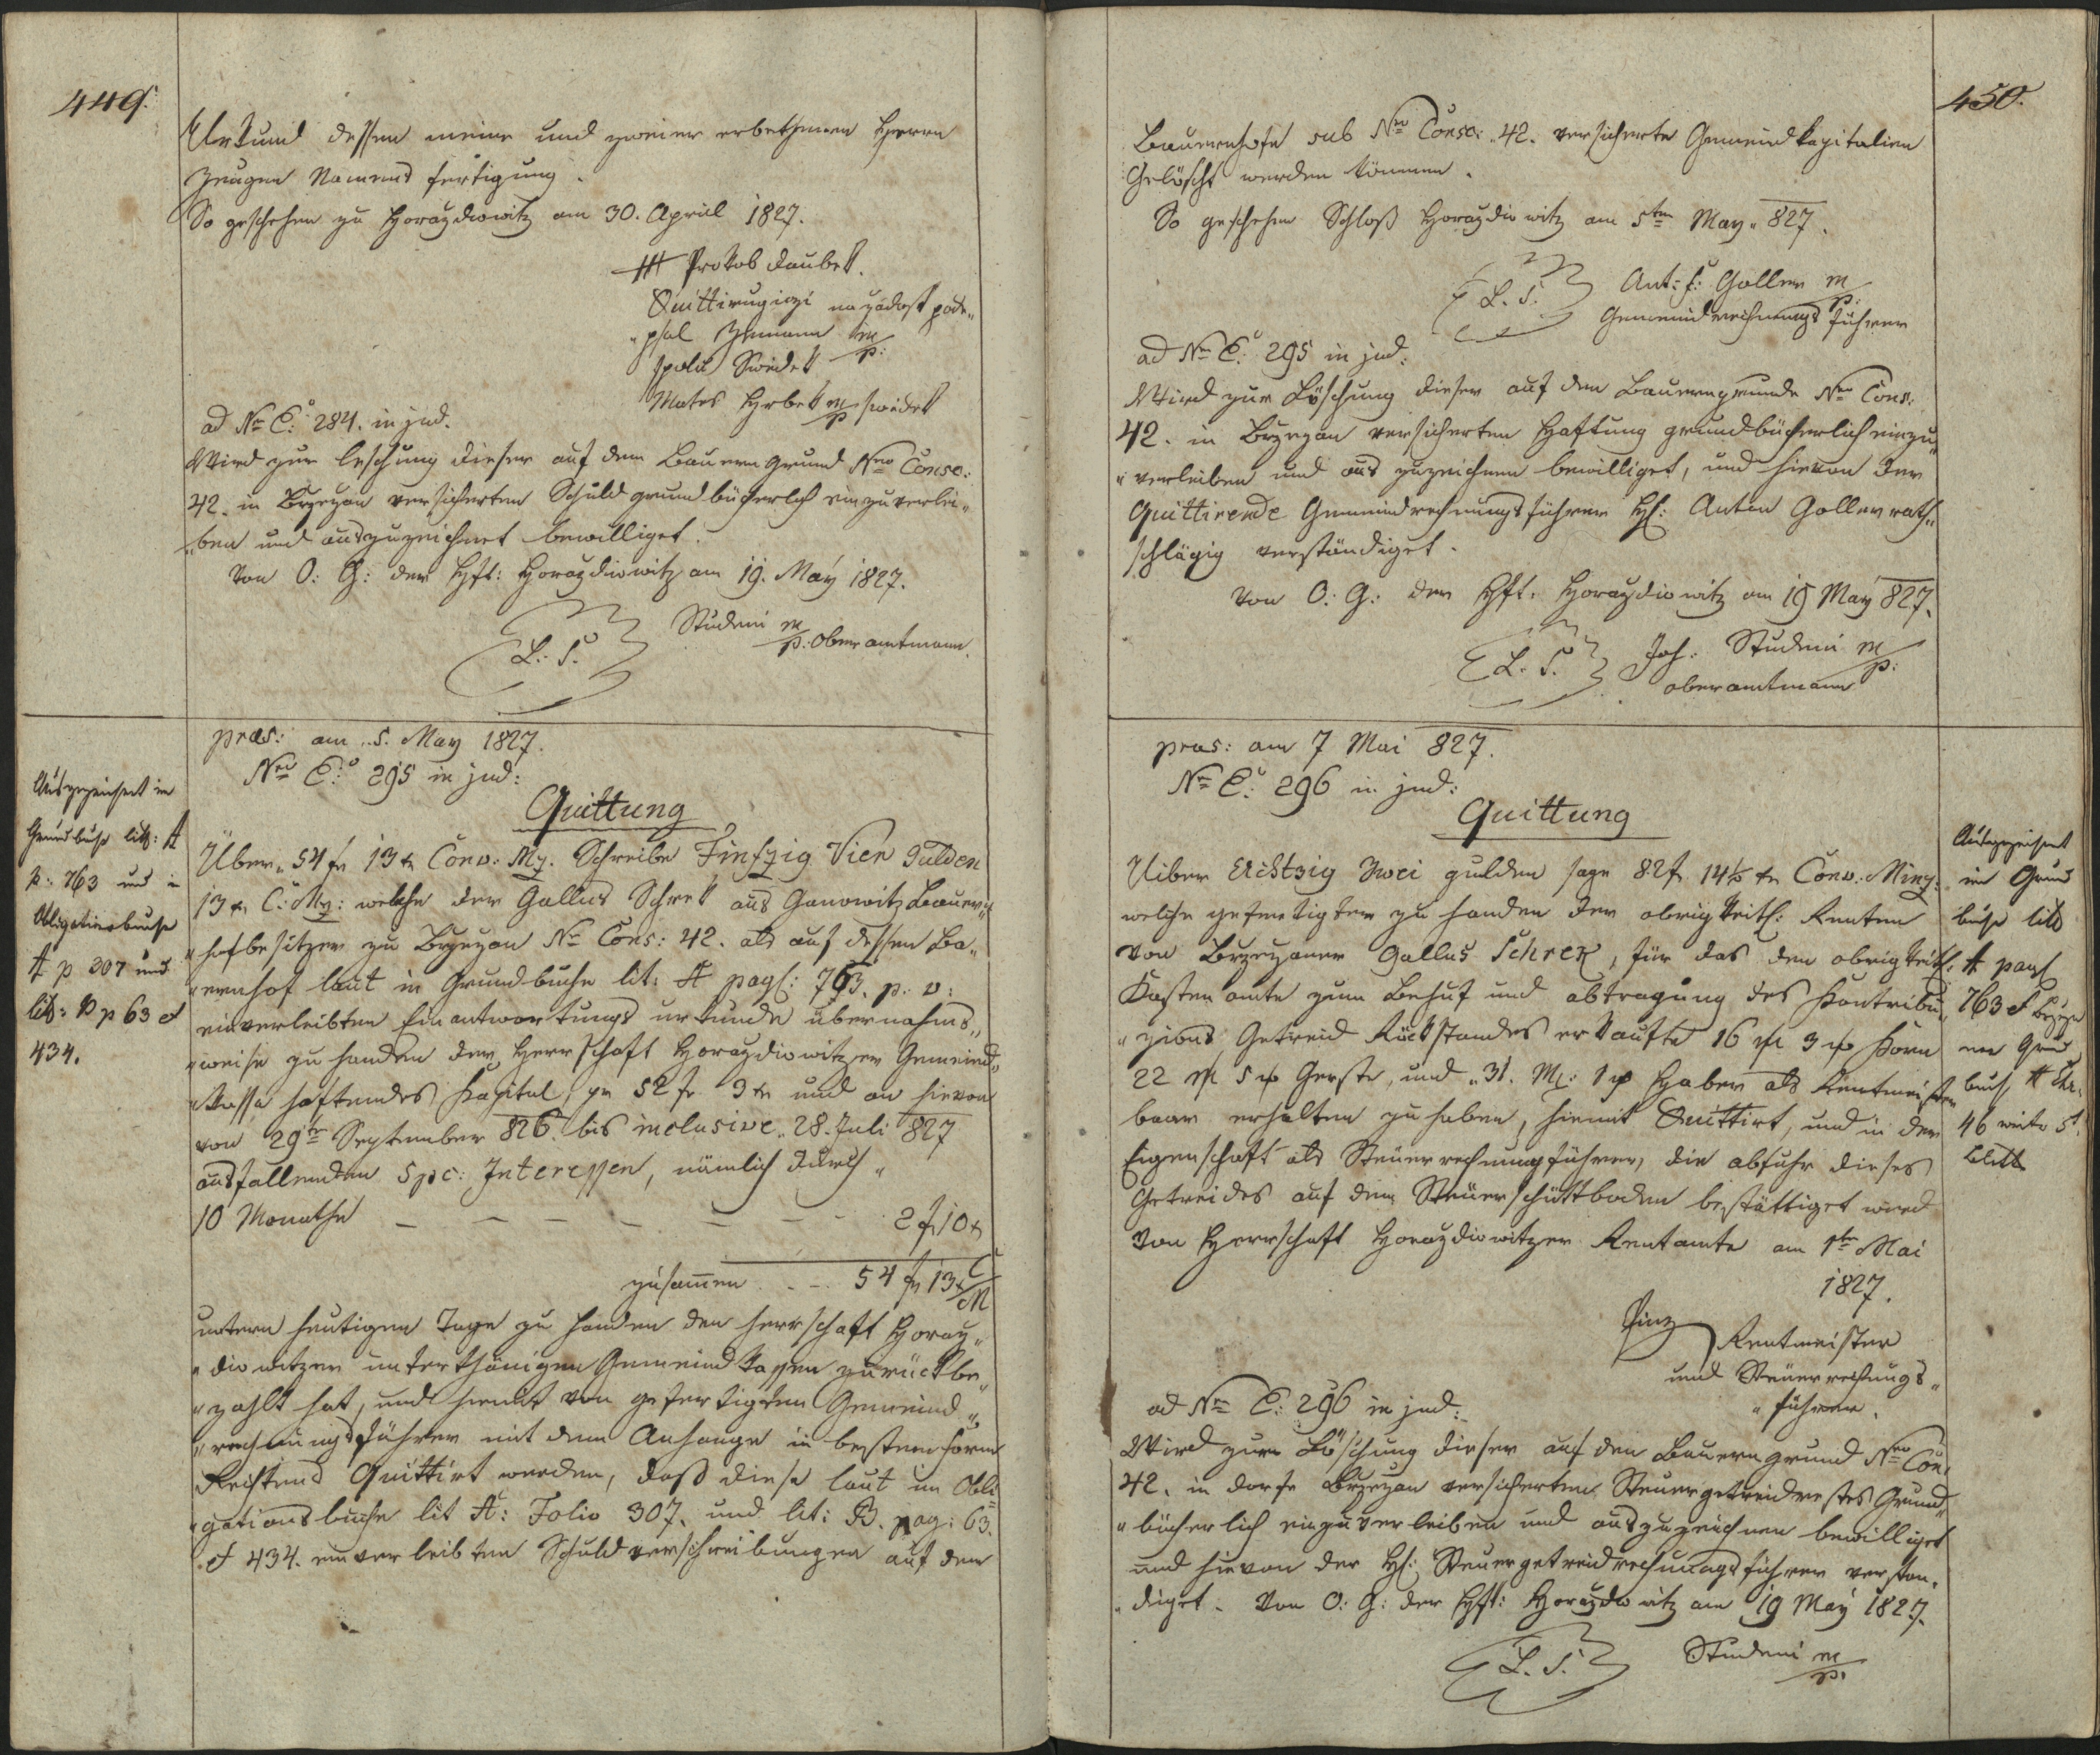 449.
Urkund dessen meine und zweier erbethenen Herrn
Zeugen Namens fertigung.
So geschehen zu Horazdiowitz am 30. April 1827.
+++ Prokob Daubek.
Quittirugiczi na zadost pode„
„psal Zemann m/p:
spolu Swedek
Mates Hrbek m/p swedek
ad Nr. E: 284. in jud.
Wird zur leschung dieser auf dem Bauern grund Nro Consc:
42. in Brzezan versicherten Schuld grundbücherlich einzuverlei„
„ben und auszuzeichnet bewilliget.
Von O: G: der Hft: Horazdiowitz am 19. May 1827.
L. S.
Studeni m/p: oberamtmann.
præs: am 5. May 1827.
Nro E: 295 in jud:
Quittung
Auszezeichnet im
Grundbuche litt: A
p: 763 und in
Obligationsbuche
A p 307 und
litt: B p 63 et
434.
Über 54 fr 13 xr Conv: Mz. Schreibe Finfzig Vier Gulden
13 xr C: Mz: welche der Gallus Schrek aus Ganowitz Bauern„
„hofbesitzer zu Brzezan Nr Cons: 42. als auf dessen Ba„
„uernhof laut in Grundbuche lit: A pag: 763. p. v:
einverleibten Einantwortungs urkunde übernahms„
„weise zu handen der Herrschaft Horazdiowitzer Gemeind„
„kassa haftendes Kapital, pr 52 fr 3 xr und an hievon
von 29ten September 826. bis inclusive 28. Juli 827
ausfallenden 5 pc: Interessen, nämlich durch
10 Monathe — — — — — — 2 f 10 xr
zusammen . — 54 fr 13 xr C/M
untern heutigen Tage zu handen der Herrschaft Horaz„
„diowitzer unterthänigen Gemeind kassen zurückbe„
„zahlt hat, und hiemit von gefertigten Gemeind„
„rechnungsführer mit dem Anhange in bester form
Rechtens Quittirt werden, daß diese laut im Obli„
„gationsbuche lit A: Folio 307. und lit: B. pag: 63.
et 434. einverleibten Schuldverschreibungen auf dem
450.
Bauernhofe sub Nro Consc: 42. versicherte Gemeindkapitalien
Gelöscht werden können.
So geschehen Schloß Horazdiowitz am 5ten May 827.
L. S.
Ant: f: Goller m/p:
Gemeindrechnungsführer
ad Nr E: 295 in jud:
Wird zur Löschung dieser auf den Bauerngrunde Nro Cons:
42. in Brzezan versicherten Haftung grundbücherlich einzu„
„verleiben und aus zuzeichnen bewilliget, und hievon der
Quittirende Gemeindrechnungsführer H: Anton Goller rath„
schlägig verständiget.
Von O: G: der Hft. Horazdiowitz am 19 May 827.
L. S.
Joh: Studeni m/p:
oberamtmann
præs: am 7 Mai 827.
Nr E: 296 in jud:
Quittung
Uiber Achtzig Zwei gulden sage 82 fr 14½ xr Conv: Minz:
welche gefertigter zu handen der obrigkeitl: Renten
von Brzezaner Gallus Schrek, für das den obrigkeitl:
Kasten amte zum Behuf und abtragung des Kontribu„
„zions Getreid Rückstandes erkaufte 16 M 3 Korn
22 M 5 Gerste, und 31. M: 1 Haber als Rentmeister
baar erhalten zu haben, hiemit Quittirt, und in der
Eigenschaft als Steuerrechnungführer, die abfuhr dieses
Getreides auf dem Steuerschüttboden bestättiget wird
Von Herrschaft Horazdiowitzer Rentamte am 1ten Mai
1827.
Rentmeister
und Steuerrechnungs„
„führer.
Auszezeichnet
im Grund
buche litt
A pag
763 et
Grund
buch A
46
Blatt
ad Nr E: 296 in jud:
Wird zur Löschung dieser auf den Bauerngrund Nro Con:
42. in dorfe Brzezan versicherten Steuergetreidrestes Grund„
„bücherlich einzuverleiben und auszuzeichnen bewilliget
und hievon der H: Steuergetreidrechnungsführer verstän„
„diget. Von O: G: der Hft: Horazdiowitz am 19 May 1827.
L. S.
Studeni m/p.